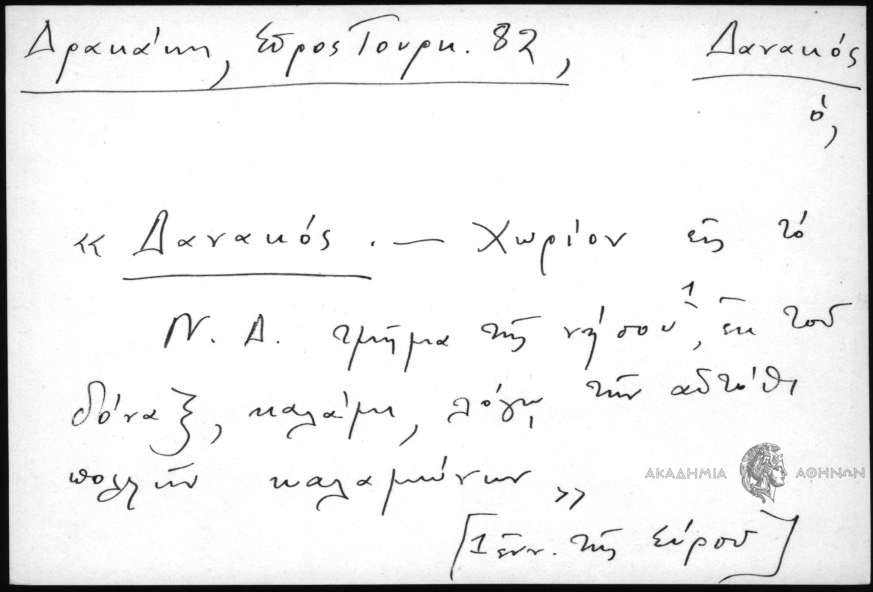 Δρακάκη, Σῦρος Τουρκ. 82, Δανακός
ὁ,
« Δανακός . — Χωρίον εἰς τό
Ν. Δ. τμῆμα τῆς νήσου¹, ἐκ τοῦ
δόναξ, καλάμι, λόγῳ τῶν αὐτόθι
πολλῶν καλαμιώνων »
[1 ἐνν. τῆς Σύρου]
ΑΚΑΔΗΜΙΑ ΑΘΗΝΩΝ